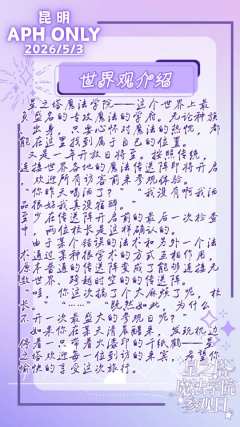 昆明
APH ONLY
2026/5/3
世界观介绍
星之塔魔法学院——这个世界上最
负盛名的专攻魔法的学府。无论种族
、出身，只要心怀对魔法的热忱，都
能在这里找到属于自己的位置。
又是一年开放日将至。按照传统，
连接世界各地的魔法传送阵即将开启
，欢迎所有访客前来参观体验。
“你昨天喝酒了？”“我没有啊我酒
品很好我真没推辞。”
至少在传送阵开启前的最后一次检查
中，两位校长是这样确认的。
由于某个错误的法术和另外一个法
术通过某种很学术的方式互相作用，
原本普通的传送阵变成了能够连接无
数世界、跨越时空的的传送门。
“哇，你这次搞了个大麻烦了呢，校
长。”“……”“既然如此，为什么
不开一次最盛大的参观日呢？”
如果你在某天清晨醒来，发现枕边
停着一只带着火漆印的千纸鹤——星
之塔欢迎每一位到访的来宾，希望你
愉快的享受这次旅行。
星之塔
魔法学院
参观日